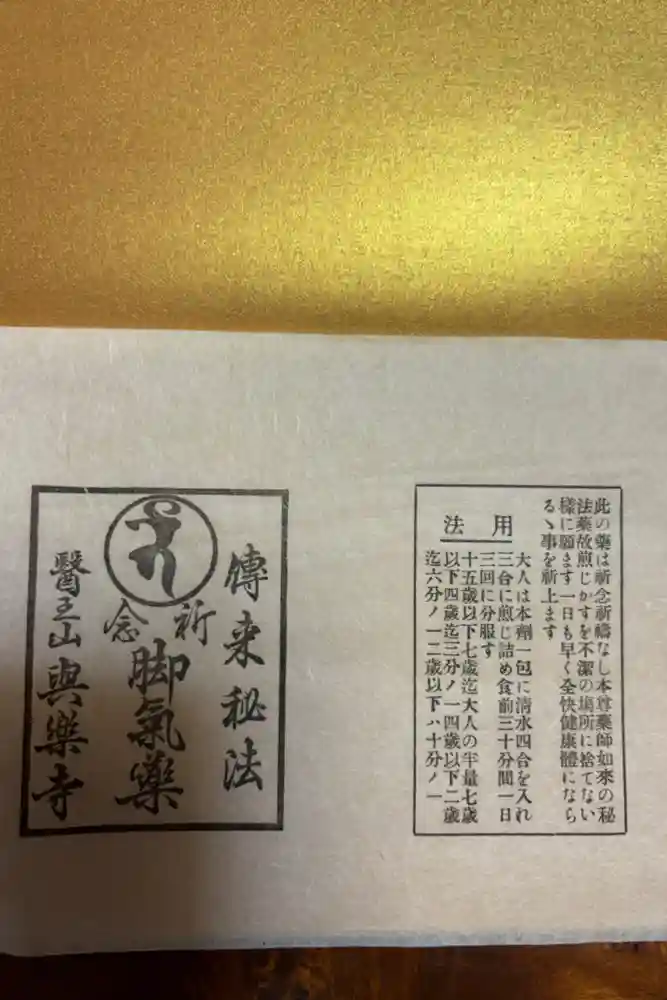 此の藥は祈念祈禱なし本尊藥師如來の秘
法藥故煎じかすを不潔の場所に捨てない
様に願ます一日も早く全快健康體になら
るゝ事を祈上ます
用法
大人は本劑一包に清水四合を入れ
三合に煎じ詰め食前三十分間一日
三回に分服す
十五歳以下七歳迄大人の半量七歳
以下四歳迄三分ノ一四歳以下二歳
迄六分ノ一二歳以下ハ十分ノ一
傳来秘法
祈念
脚氣藥
醫王山與樂寺